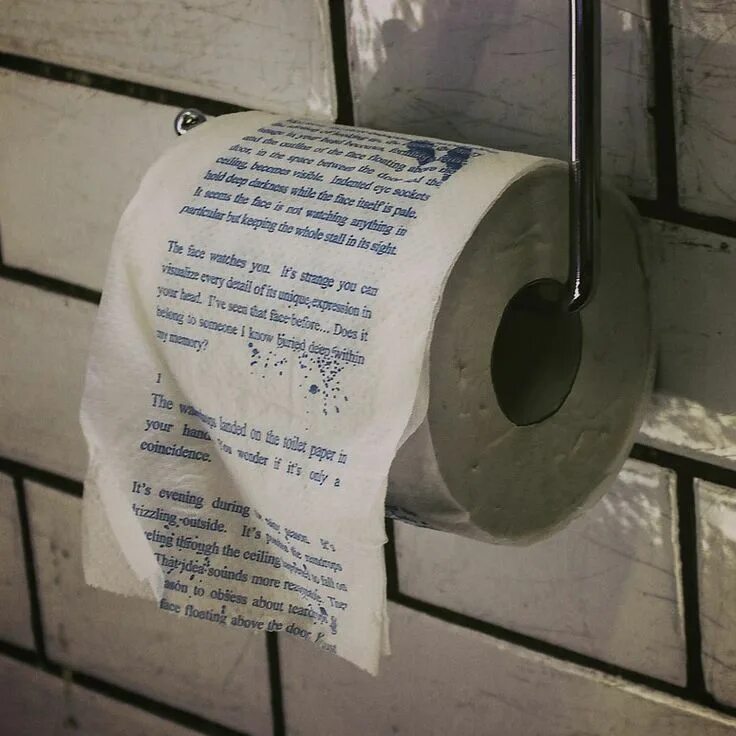 the outline of the face floating above
door, in the space between the door and the
ceiling, becomes visible. Indented eye sockets
hold deep darkness while the face itself is pale.
It seems the face is not watching anything in
particular but keeping the whole stall in its sight.
The face watches you. It's strange you can
visualize every detail of its unique expression in
your head. I've seen that face before... Does it
belong to someone I know buried deep within
my memory?
1
The landed on the toilet paper in
your hand. You wonder if it's only a
coincidence.
It's evening during It's
drizzling outside. It's the raindrops
through the ceiling to fall on
That idea sounds more
to obsess about
face floating above the door.